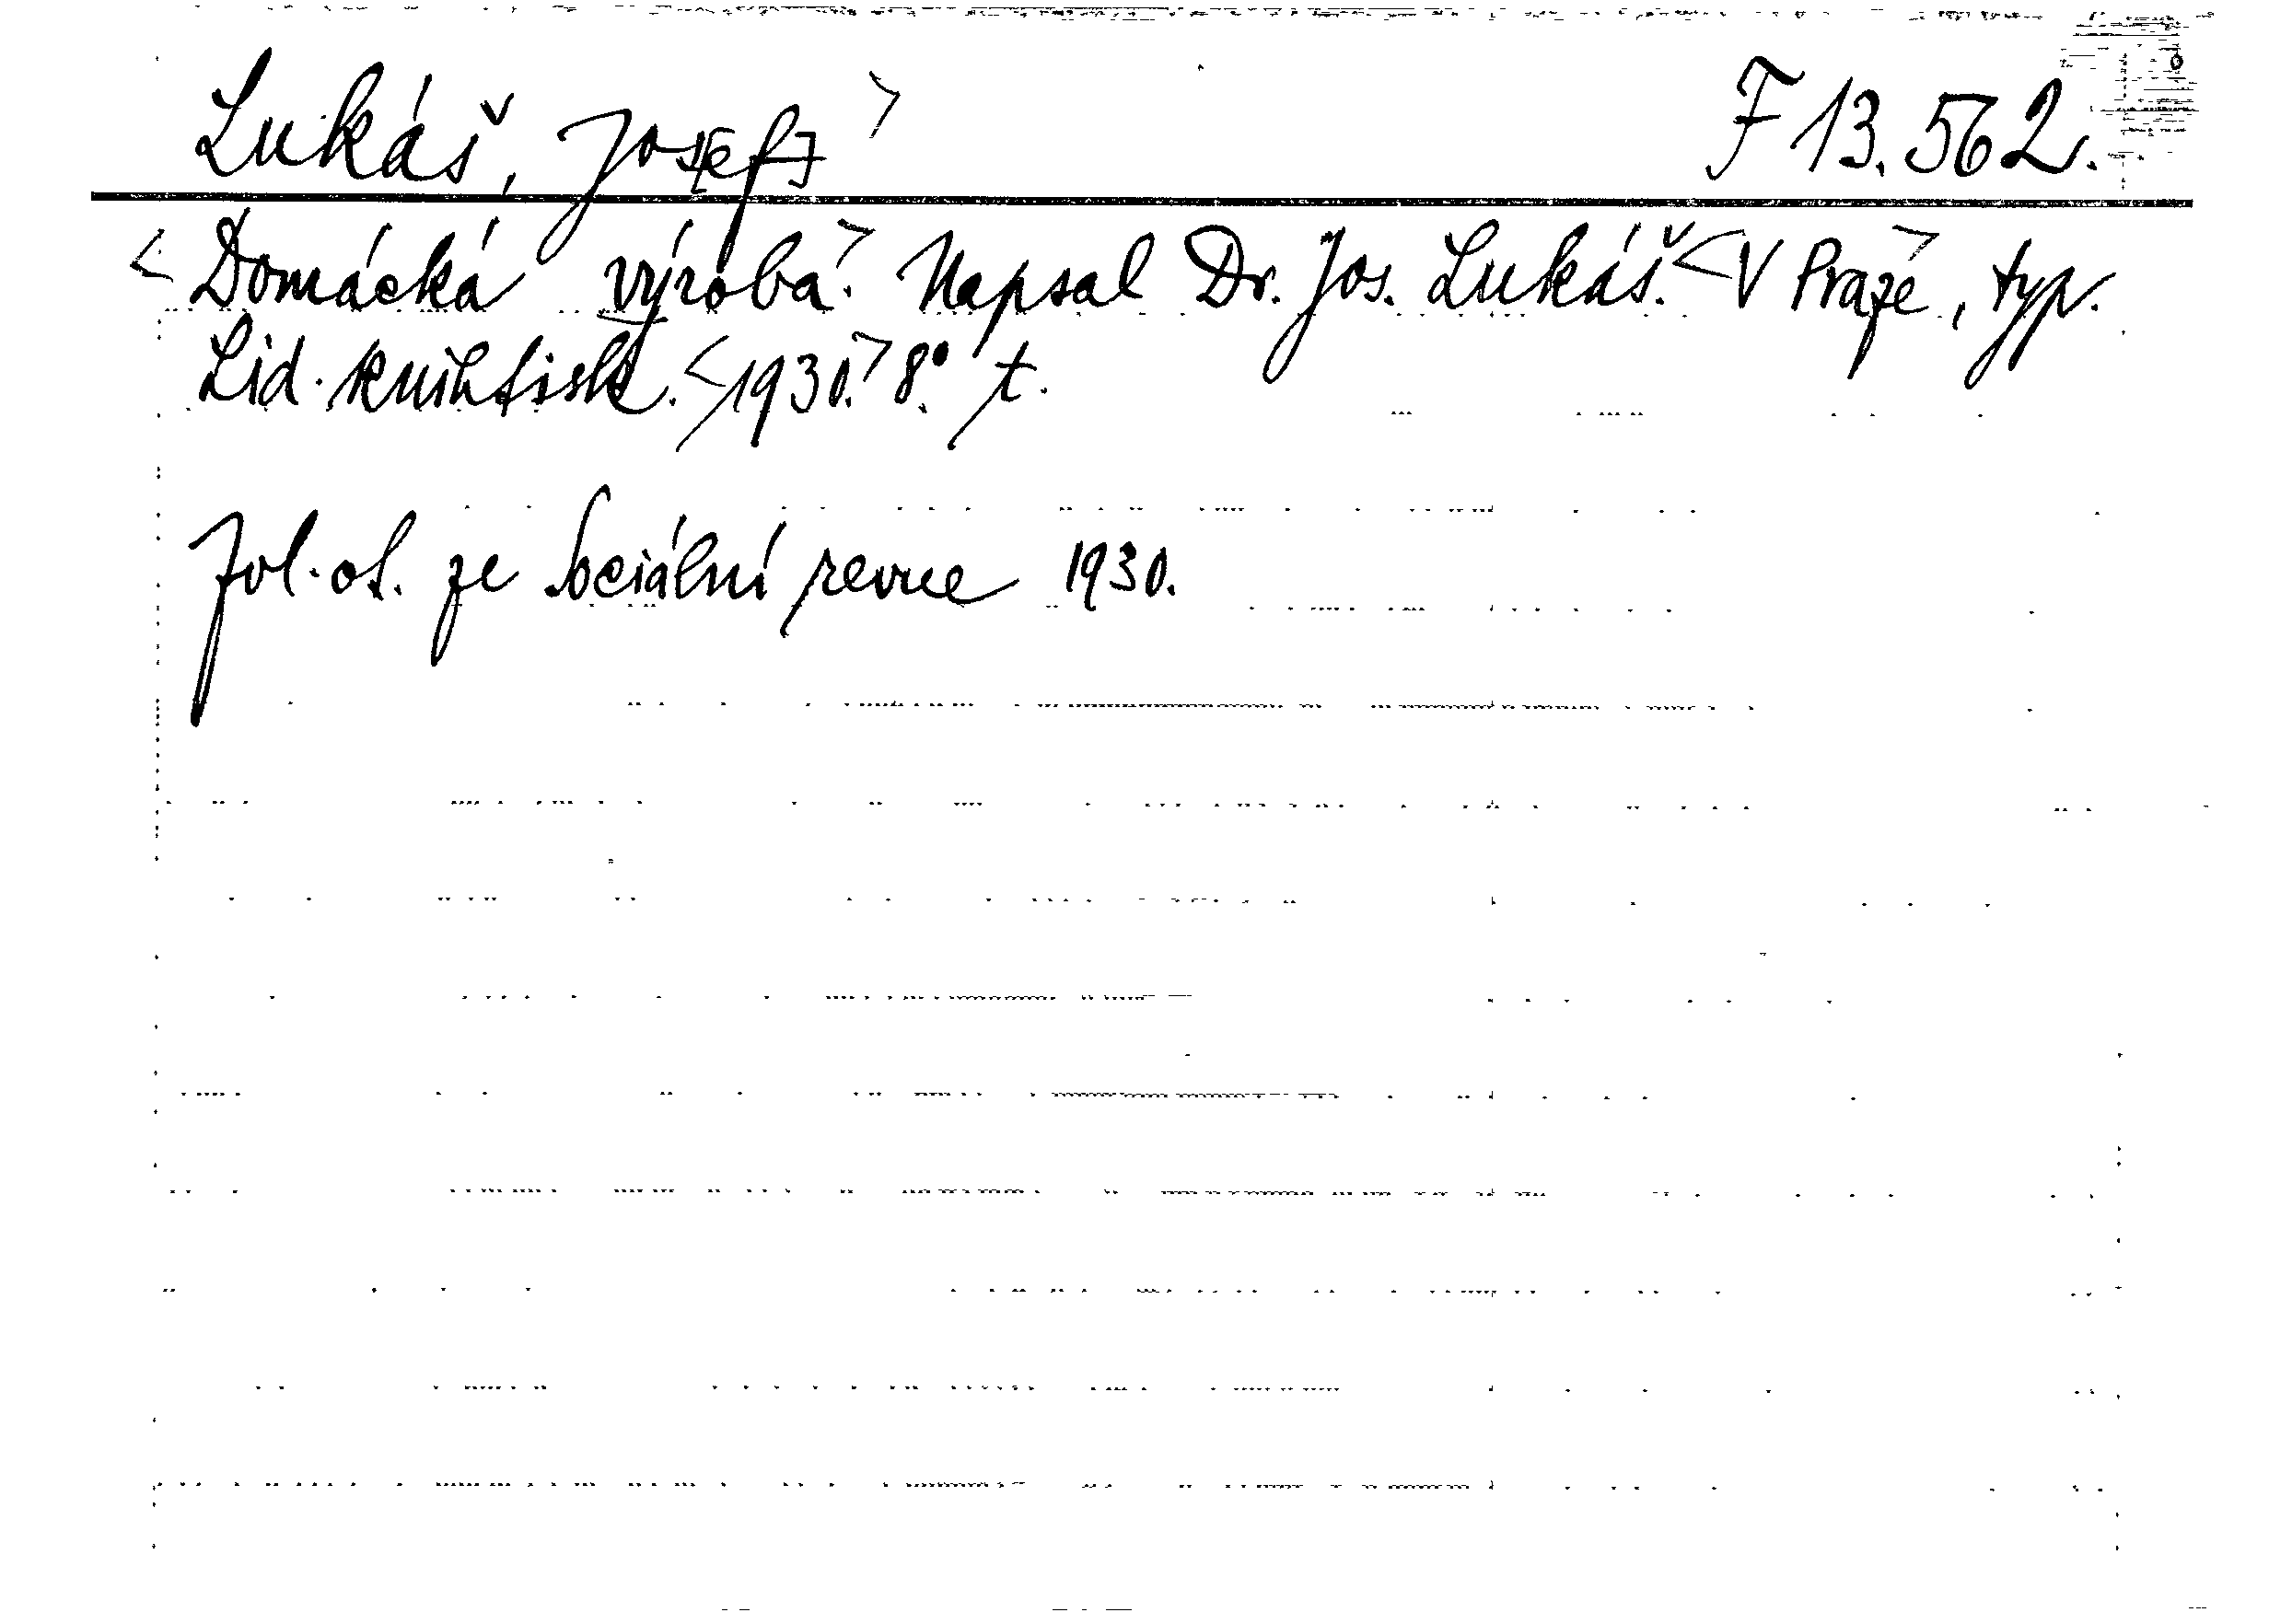 Lukáš, Jos[ef] > F 13.562.
< Domácká výroba. > Napsal Dr. Jos. Lukáš. < V Praze, typ.
Lid. knihtisk. < 1930. > 8°. t.
Zvl. ot. ze Sociální revue 1930.